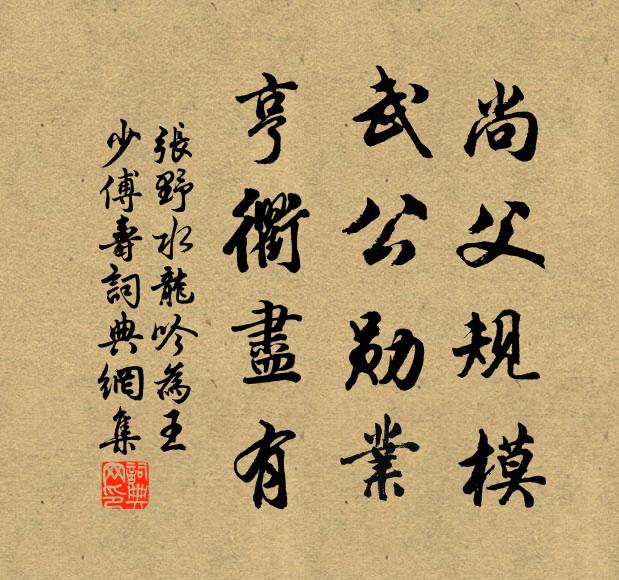 尚父規模
武公勛業
亨衢盡有
張野水龍吟為王
少傅壽詞典網集
詞典
网印